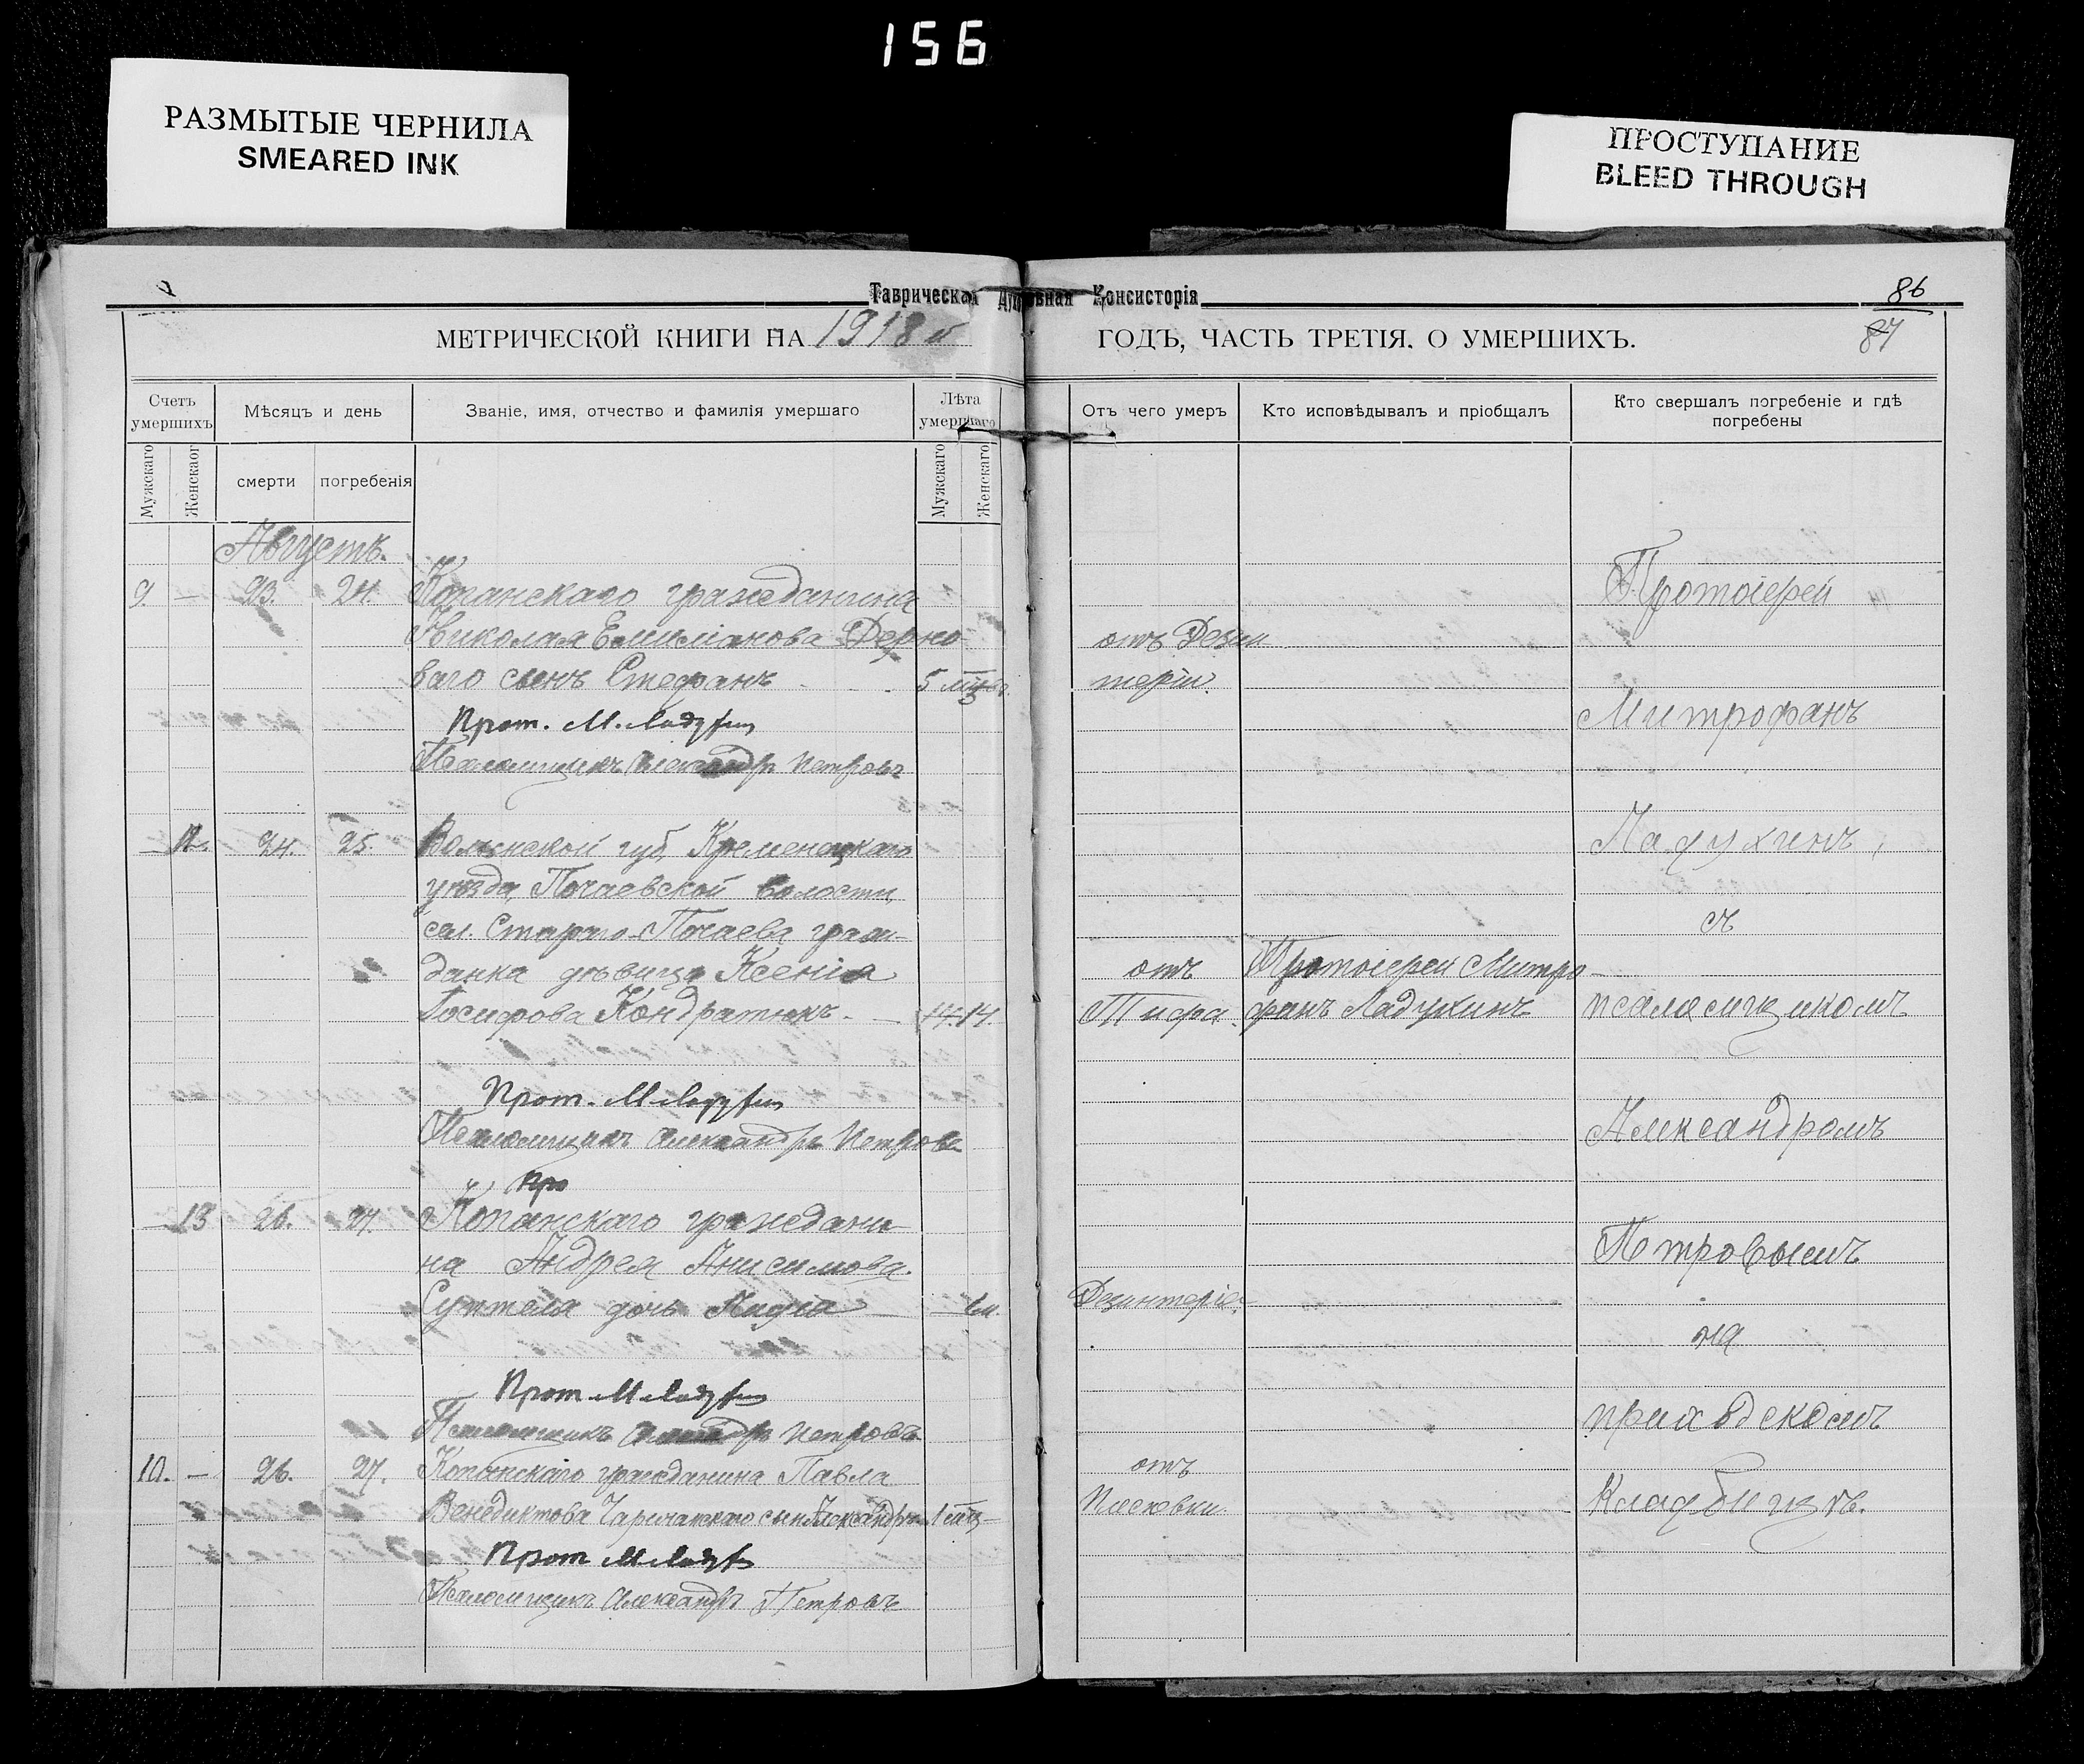 156
РАЗМЫТЫЕ ЧЕРНИЛА
SMEARED INK
ПРОСТУПАНИЕ
BLEED THROUGH
Таврическая Духовная Консисторія
86
87
МЕТРИЧЕСКОЙ КНИГИ НА 1918й
ГОДЪ, ЧАСТЬ ТРЕТІЯ, О УМЕРШИХЪ.
Счетъ умершихъ
Мѣсяцъ и день
Званіе, имя, отчество и фамилія умершаго
Лѣта умершаго
Отъ чего умеръ
Кто исповѣдывалъ и пріобщалъ
Кто свершалъ погребеніе и гдѣ погребены
Мужскаго
Женскаог
смерти
погребенія
Мужскаго
Женскаго
Августъ.
9. — 23. 24. Копанскаго гражданина
Николая Емиліанова Дерно-
ваго сынъ Стефанъ - 5
Прот. М. Ладухин
Псаломщикъ Александръ Петровъ
— 12. 24. 25. Волынской губ, Кременецкаго
уѣзда, Почаевской волости,
сел. Стараго-Почаева граж-
данка дѣвица Ксенія
Іосифова Кондратюкъ. — 14. 14.
Прот. М Ладухин
Псаломщикъ Александръ Петровъ
Про
— 13 26. 27. Копанскаго граждани-
на Андрея Анисимова
дочь Лидія —
Прот М Ладухин
Псаломщикъ Александръ Петровъ
10. — 26. 27. Копанскаго гражданина Павла
Венедиктова сынъ Александръ
Прот М Ладух
Псаломщикъ Александръ Петровъ
отъ Дезин
теріи.
отъ
Тифа.
Протоіерей Митро-
фанъ Ладухинъ
Дезинтеріе.
отъ
Протоіерей
Митрофанъ
Ладухинъ,
съ
псаломщикомъ
Александромъ
Птровымъ
на
приходскомъ
Кладбищѣ.